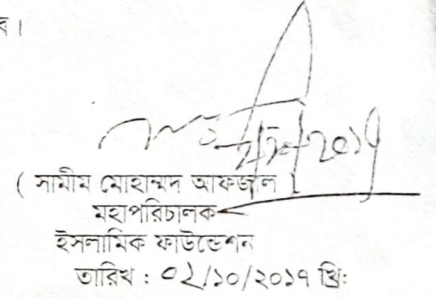 ব।
২/১০/২০১৭
( সামীম মোহাম্মদ আফজাল )
মহাপরিচালক
ইসলামিক ফাউন্ডেশন
তারিখ : ০২/১০/২০১৭ খ্রিঃ